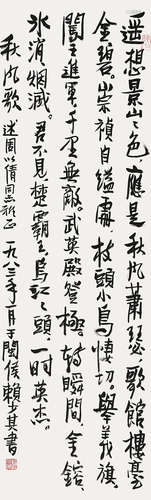 遥想景山之色應是秋風蕭瑟歌館樓臺
金碧崇禎自縊處枝頭小鳥悽切舉義旗
闖王進軍千里無敵武英殿登極轉瞬間金鎔
冰消烟滅君不見楚霸王烏江之頭一时英杰
秋風歌 述周以儔同志雅正 一九八三年一月于閩侯賴少其書